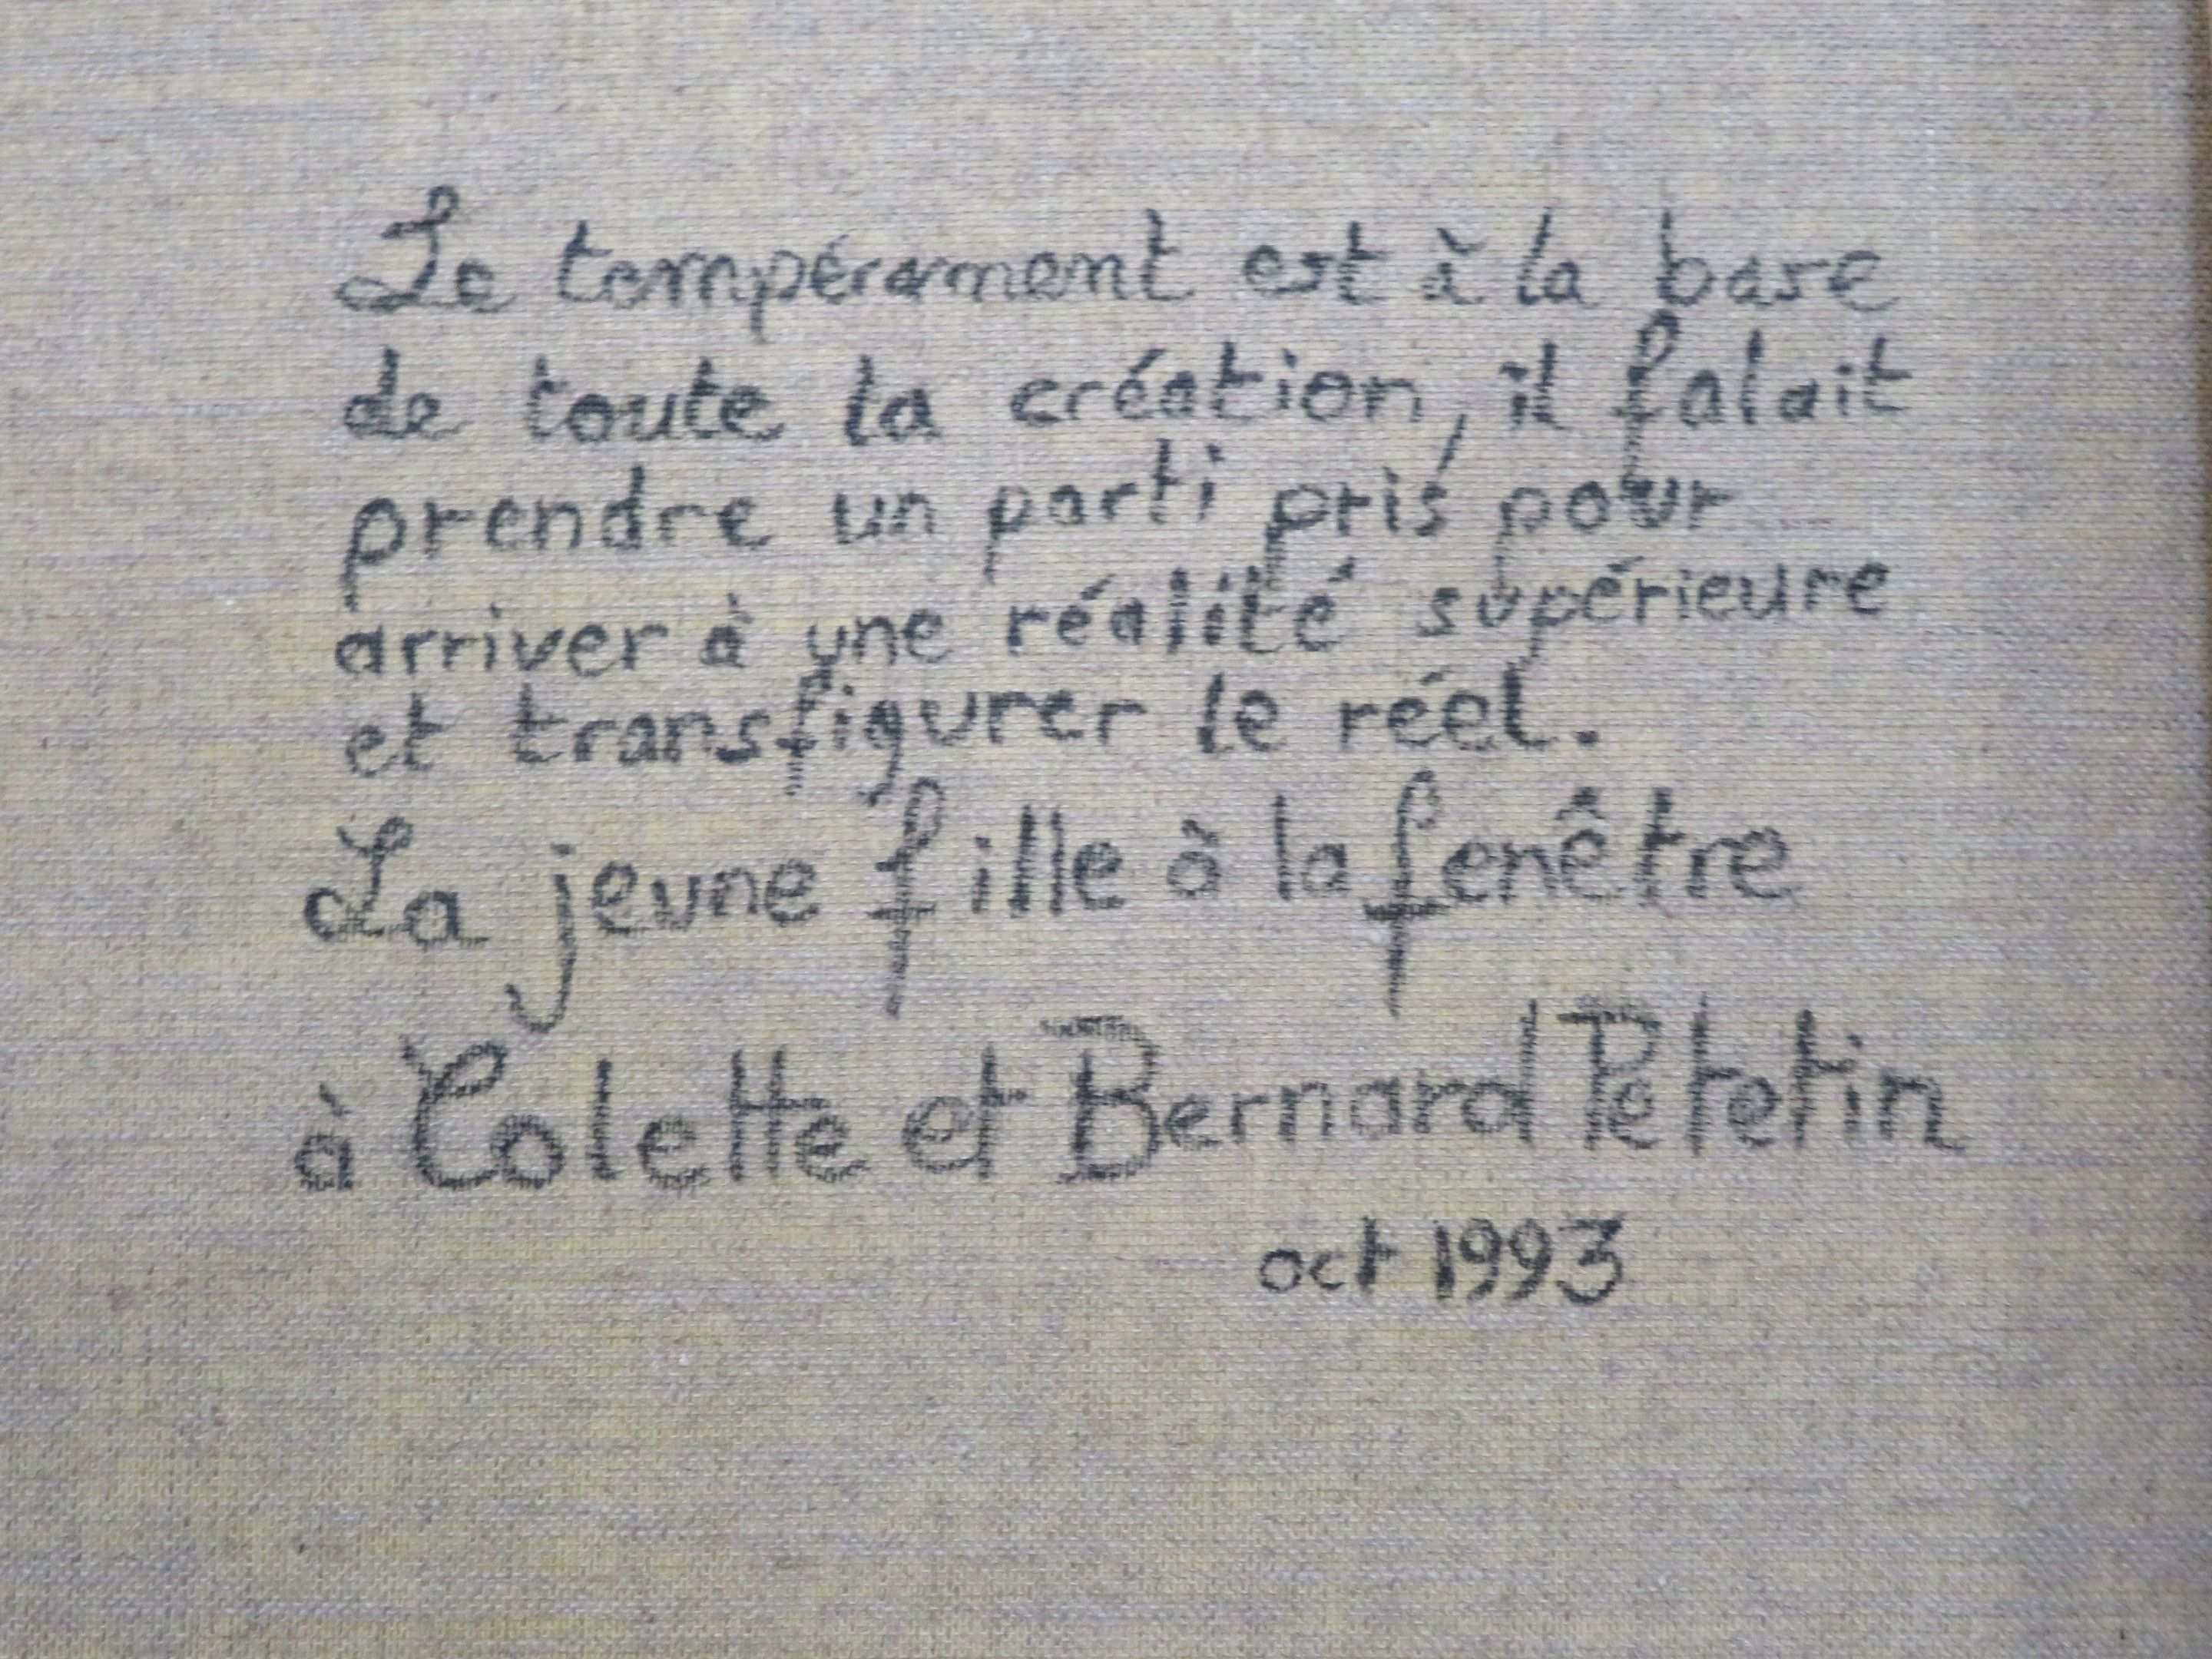 Le tempérament est à la base
de toute la création, il falait
prendre un parti pris pour
arriver à une réalité supérieure
et transfigurer le réel.
La jeune fille à la fenêtre
à Colette et Bernard Petetin
oct 1993